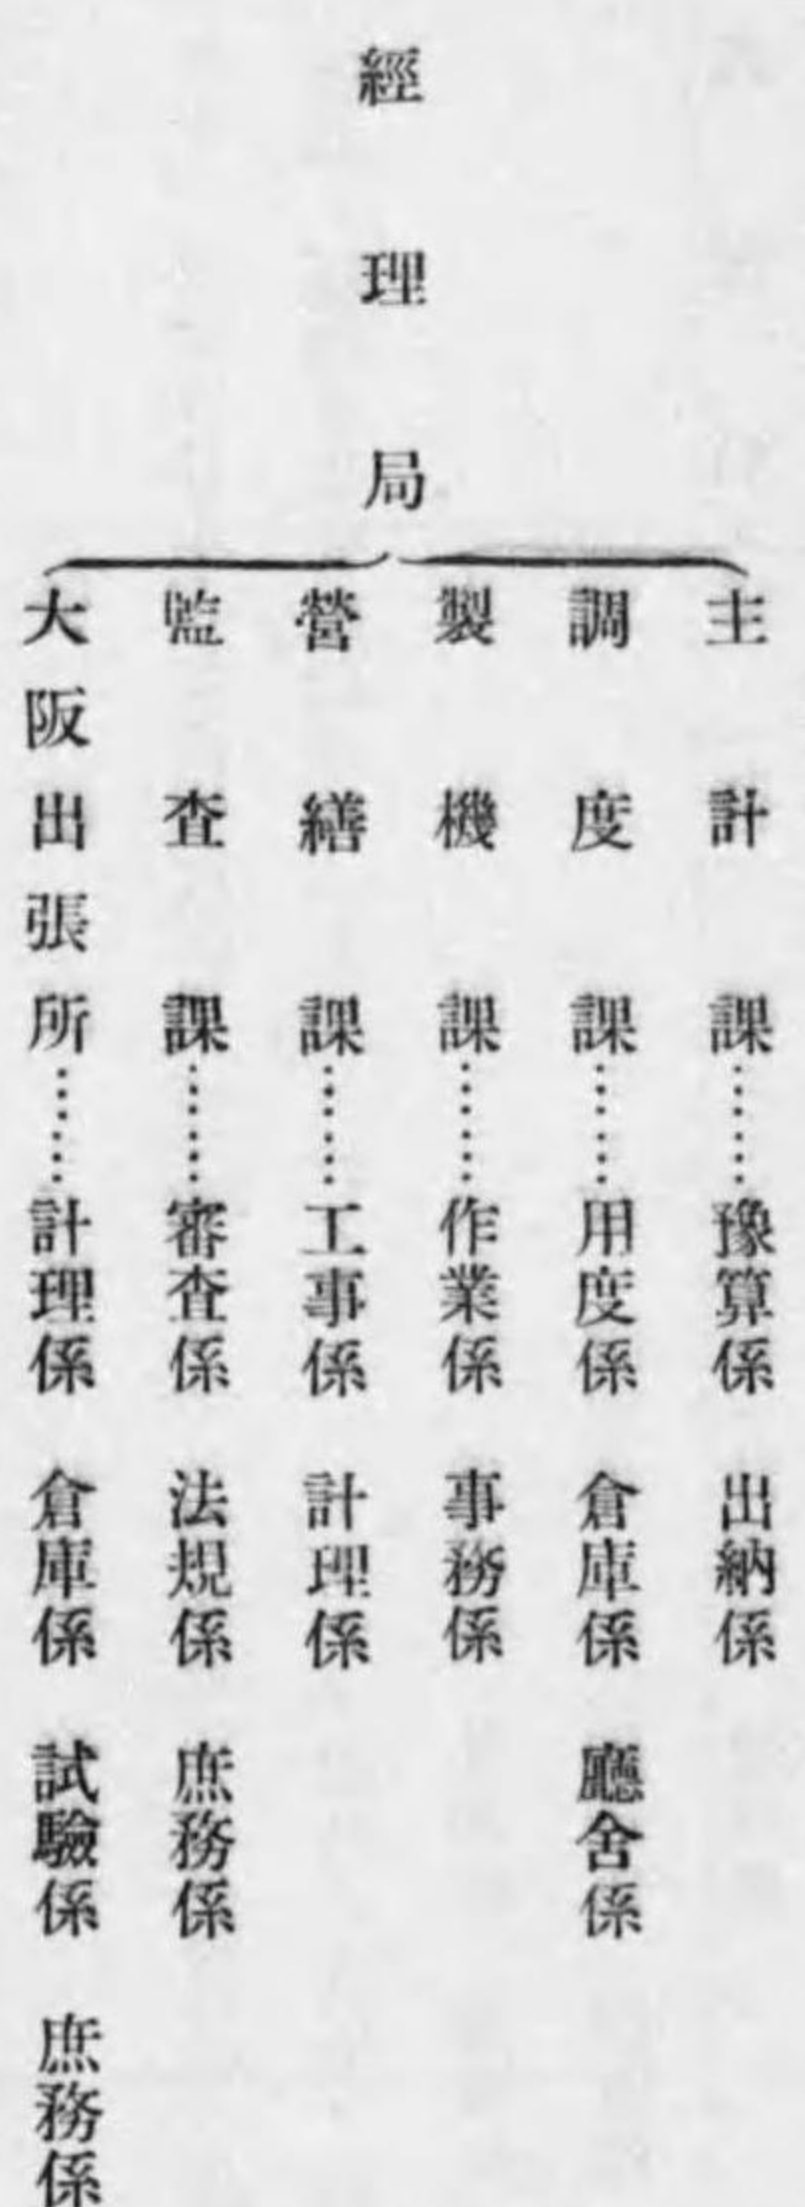 經理局
主計課……豫算係 出納係
調度課……用度係 倉庫係 廳舍係
製機課……作業係 事務係
營繕課……工事係 計理係
監査課……審査係 法規係 庶務係
大阪出張所……計理係 倉庫係 試驗係 庶務係